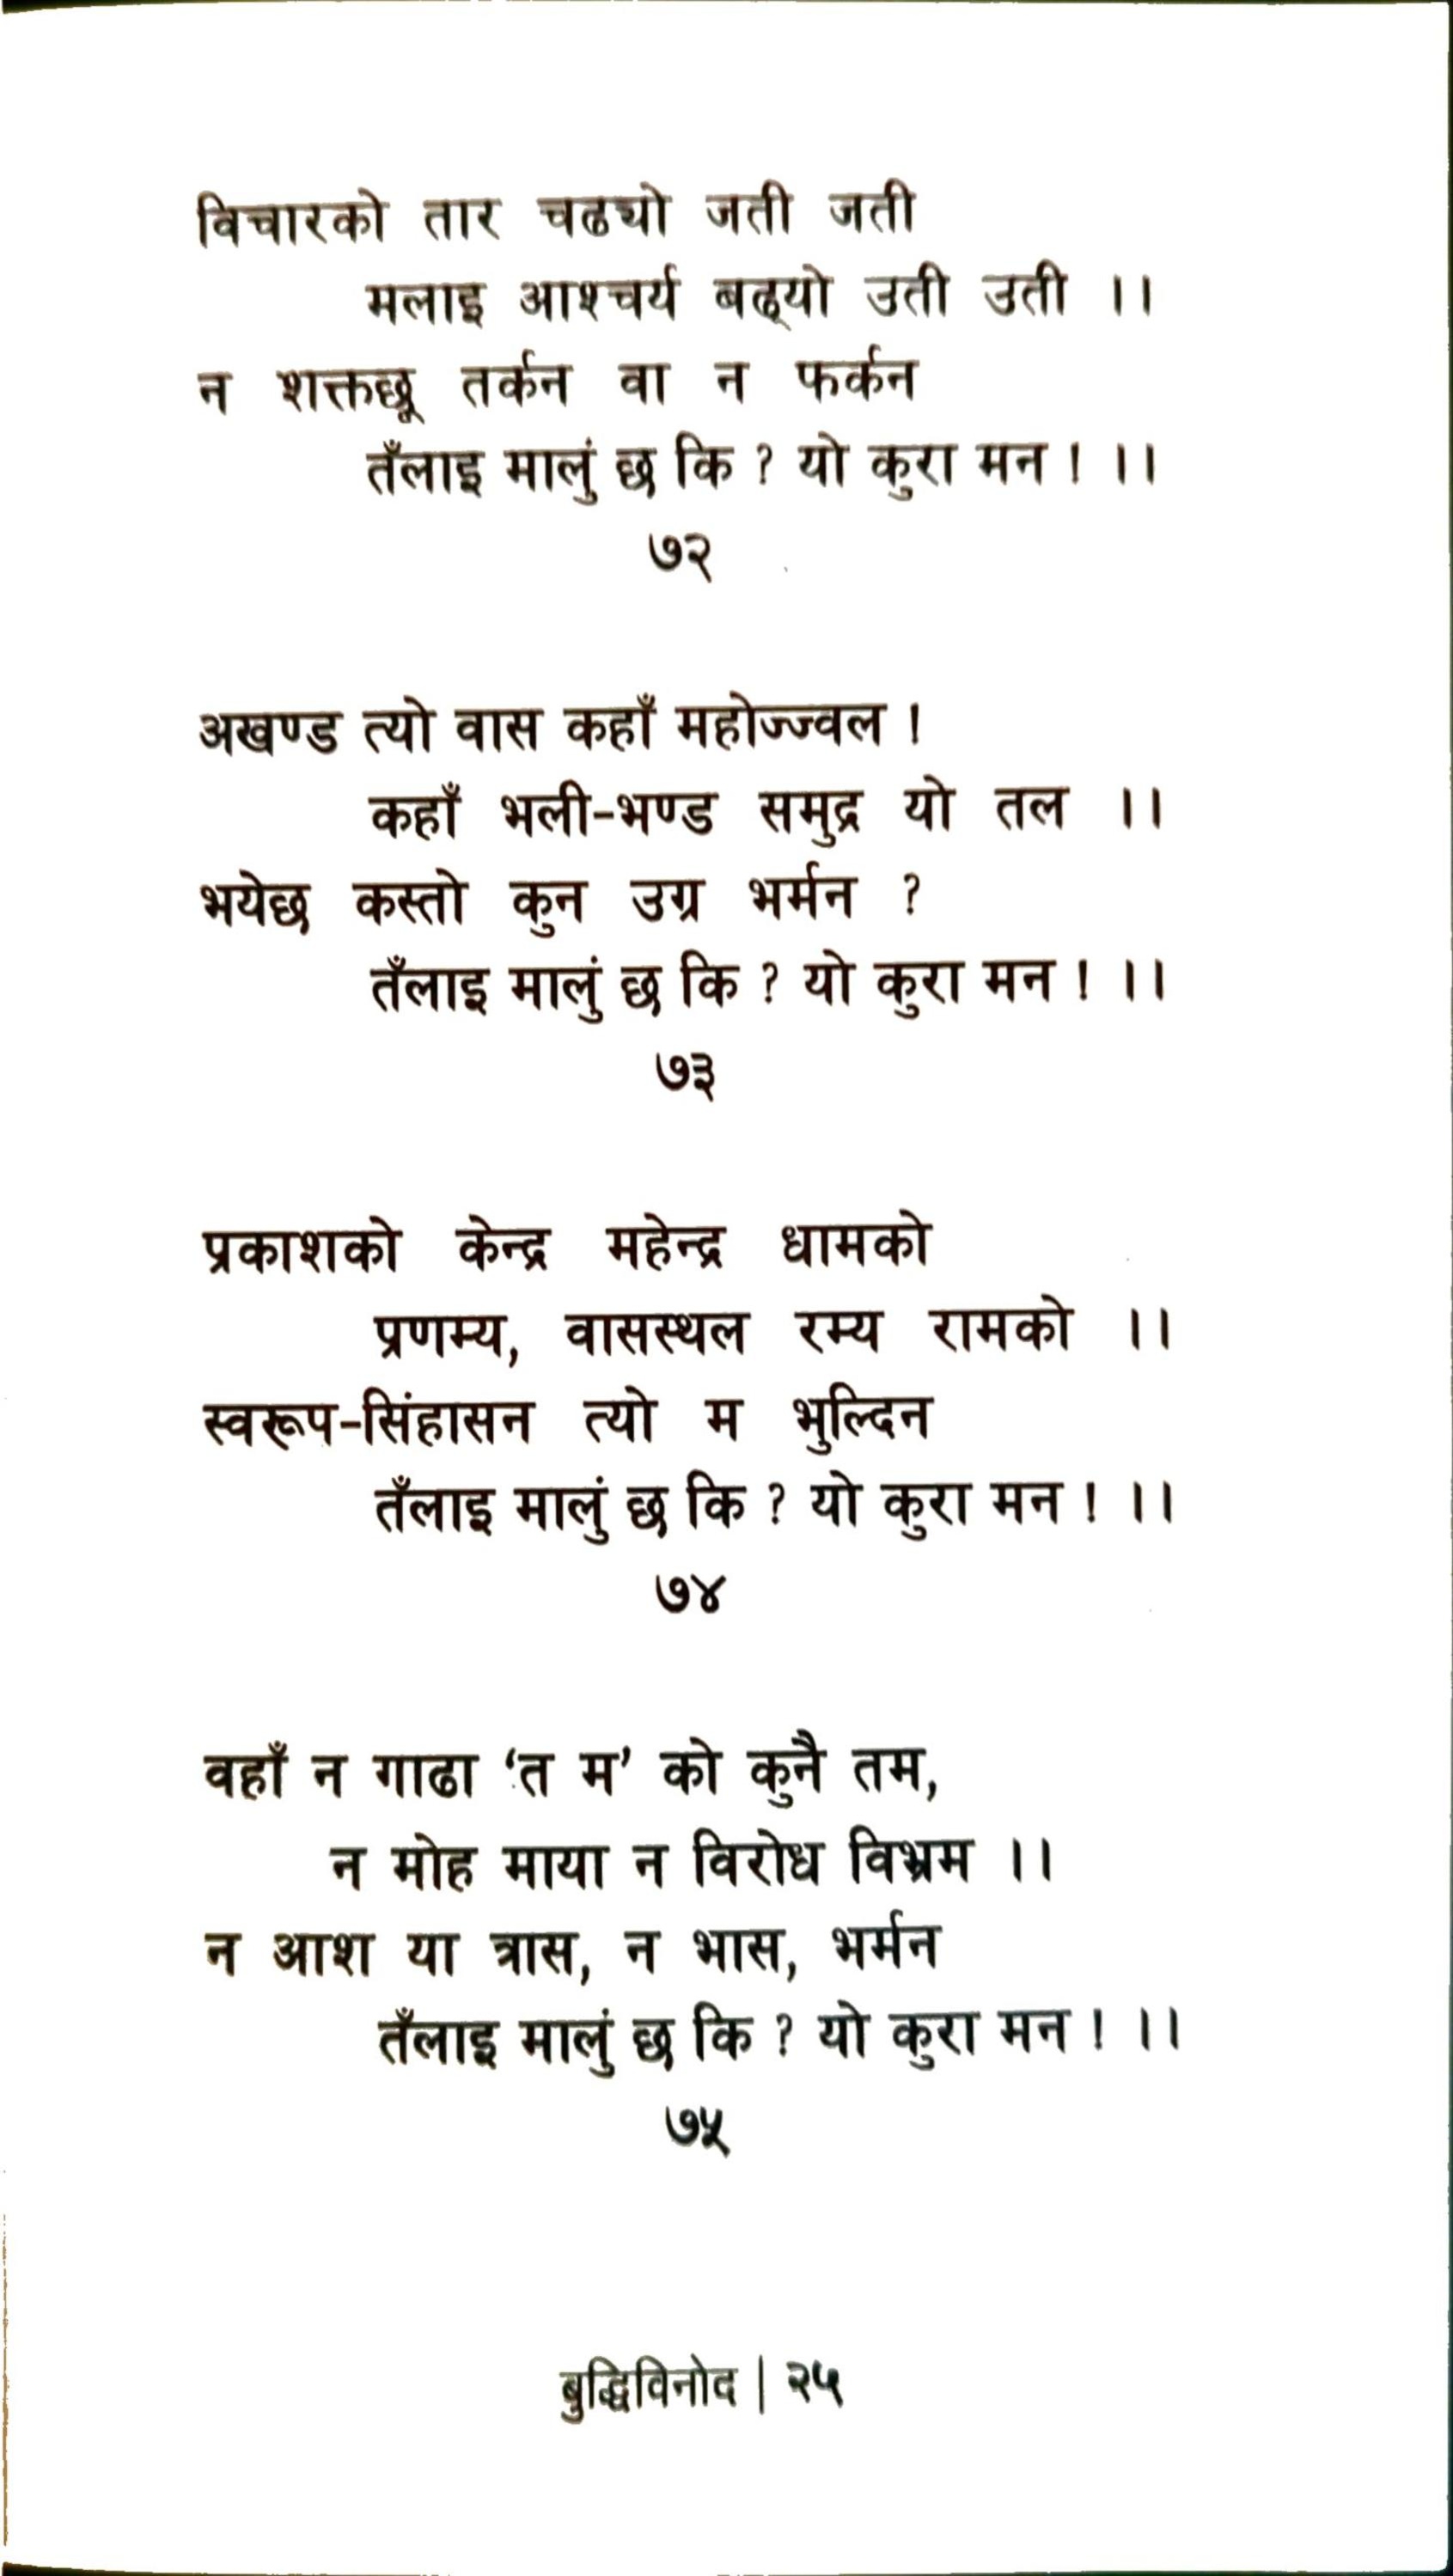 विचारको तार चढ्यो जती जती
मलाइ आश्चर्य बढ्यो उती उती ।।
न शक्तछू तर्कन वा न फर्कन
तँलाइ मालुं छ कि ? यो कुरा मन ! ।।
७२
अखण्ड त्यो वास कहाँ महोज्ज्वल !
कहाँ भली-भण्ड समुद्र यो तल ।।
भयेछ कस्तो कुन उग्र भर्मन ?
तँलाइ मालुं छ कि ? यो कुरा मन ! ।।
७३
प्रकाशको केन्द्र महेन्द्र धामको
प्रणम्य, वासस्थल रम्य रामको ।।
स्वरूप-सिंहासन त्यो म भुल्दिन
तँलाइ मालुं छ कि ? यो कुरा मन ! ।।
७४
वहाँ न गाढा ‘त म’ को कुनै तम,
न मोह माया न विरोध विभ्रम ।।
न आश या त्रास, न भास, भर्मन
तँलाइ मालुं छ कि ? यो कुरा मन ! ।।
७५
बुद्धिविनोद | २५